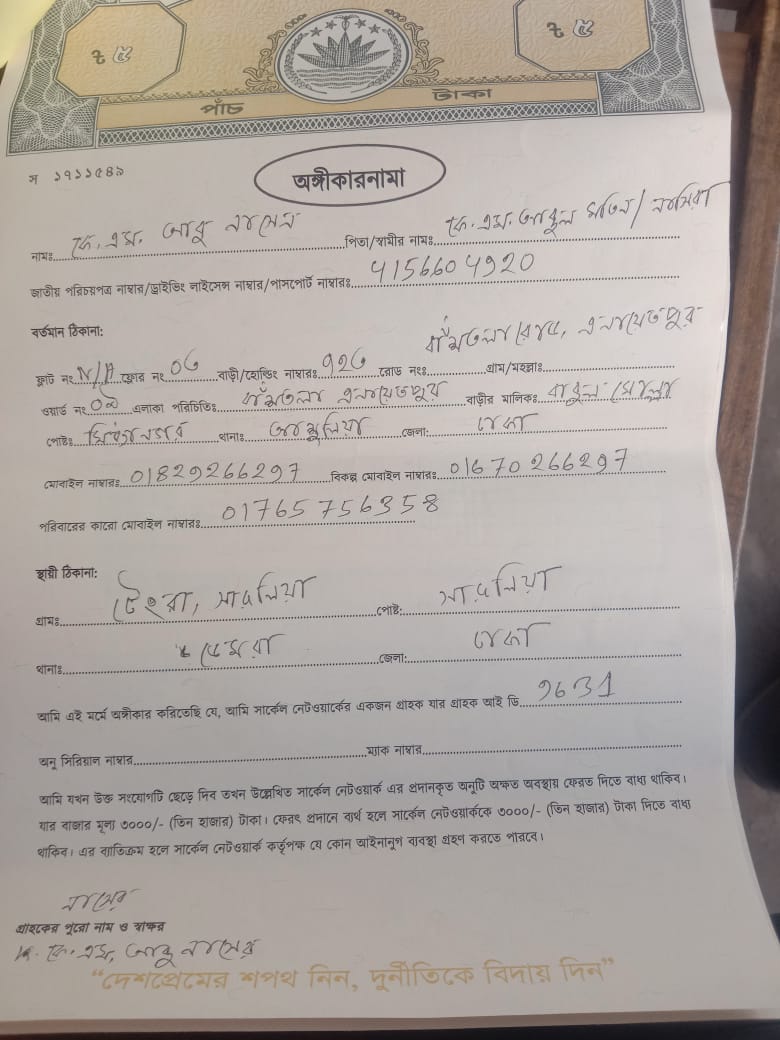 ৳ ৫ ৳ ৫
পাঁচ টাকা
স ১৭১১৫৪৯
অঙ্গীকারনামা
নামঃ কে. এম. আবু নাসের পিতা/স্বামীর নামঃ কে. এম. আবুল মতিন/
জাতীয় পরিচয়পত্র নাম্বার/ড্রাইভিং লাইসেন্স নাম্বার/পাসপোর্ট নাম্বারঃ 4156604920
বর্তমান ঠিকানা:
ফ্লাট নং N/A ফ্লোর নং 06 বাড়ী/হোল্ডিং নাম্বারঃ রোড নংঃ গ্রাম/মহল্লাঃ বাঁশতলা রোড, এনায়েতপুর
ওয়ার্ড নং এলাকা পরিচিতিঃ বাঁশতলা এনায়েতপুর বাড়ীর মালিকঃ বাবুল মোল্লা
পোষ্টঃ থানাঃ আশুলিয়া জেলা: ঢাকা
মোবাইল নাম্বারঃ 01829266297 বিকল্প মোবাইল নাম্বারঃ 01670266297
পরিবারের কারো মোবাইল নাম্বারঃ 01765756358
স্থায়ী ঠিকানা:
গ্রামঃ টেংরা, সারুলিয়া পোষ্ট: সারুলিয়া
থানাঃ ডেমরা জেলা: ঢাকা
আমি এই মর্মে অঙ্গীকার করিতেছি যে, আমি সার্কেল নেটওয়ার্কের একজন গ্রাহক যার গ্রাহক আই ডি
অনু সিরিয়াল নাম্বার ম্যাক নাম্বার
আমি যখন উক্ত সংযোগটি ছেড়ে দিব তখন উল্লেখিত সার্কেল নেটওয়ার্ক এর প্রদানকৃত অনুটি অক্ষত অবস্থায় ফেরত দিতে বাধ্য থাকিব।
যার বাজার মূল্য ৩০০০/- (তিন হাজার) টাকা। ফেরৎ প্রদানে ব্যর্থ হলে সার্কেল নেটওয়ার্ককে ৩০০০/- (তিন হাজার) টাকা দিতে বাধ্য
থাকিব। এর ব্যতিক্রম হলে সার্কেল নেটওয়ার্ক কর্তৃপক্ষ যে কোন আইনানুগ ব্যবস্থা গ্রহণ করতে পারবে।
নাসের
গ্রাহকের পুরো নাম ও স্বাক্ষর
কে. এম. আবু নাসের
“দেশপ্রেমের শপথ নিন, দুর্নীতিকে বিদায় দিন”